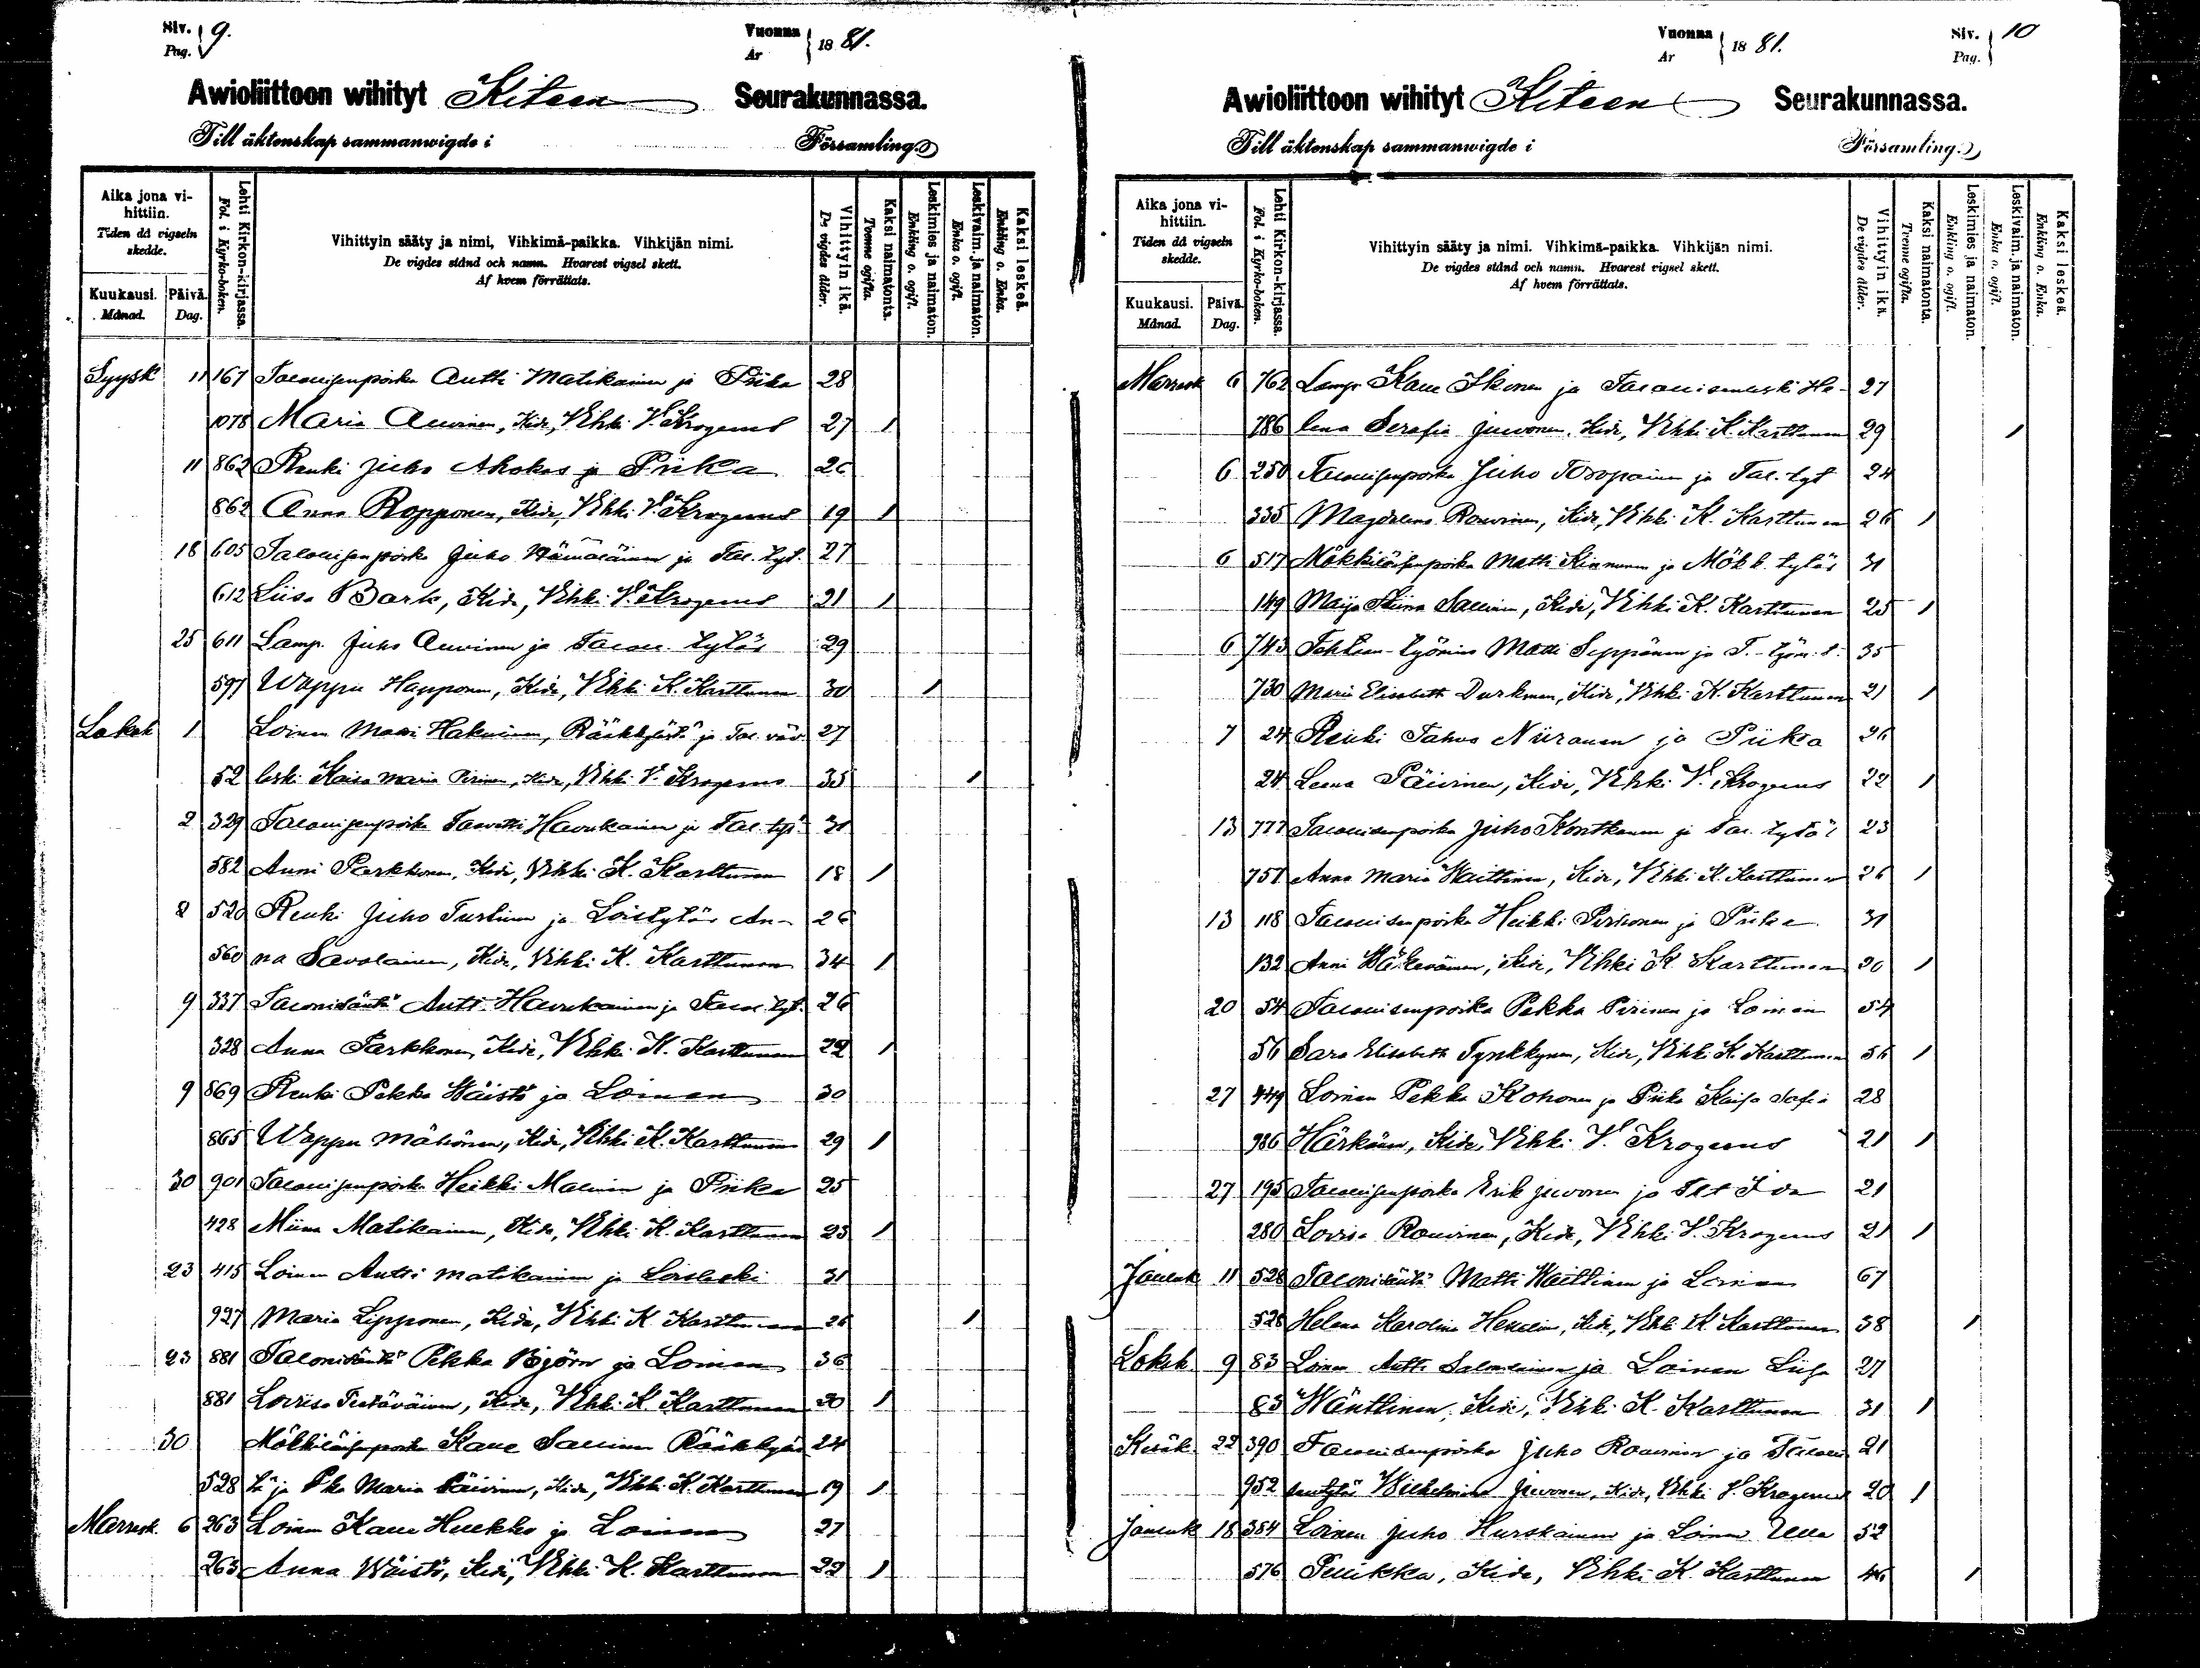 Siv. Pag. 9.
Vuonna År 1881.
Awioliittoon wihityt Kiteen Seurakunnassa.
Till äktenskap sammanwigde i Församling.
Aika jona vihittiin.
Tiden då vigseln skedde.
Kuukausi. Månad.
Päivä. Dag.
Lehti Kirkon-kirjassa.
Fol. i Kyrko-boken.
Vihittyin sääty ja nimi, Vihkimä-paikka. Vihkijän nimi.
De vigdes stånd och namn. Hvarest vigsel skett.
Af hvem förrättats.
Vihittyin ikä.
De vigdes ålder.
Kaksi naimatonta.
Tvenne ogifta.
Leskimies ja naimaton.
Enkling o. ogift.
Leskivaim. ja naimaton.
Enka o. ogift.
Kaksi leskeä.
Enkling o. Enka.
Syysk 11 167 Talouisenpoika Antti Matikainen ja Piika 28
1078 Maria Auvinen, Kide, Vihki V. Krogerus 27 1
11 862 Renki Juho Ahokas ja Piika 26
862 Anna Ropponen, Kide, Vihki V. Krogerus 19 1
18 605 Talouisenpoika Juho Hämäläinen ja Tal. tyt. 27
612 Liisa Bark, Kide, Vihki V. Krogerus 21 1
25 611 Lamp. Juho Auvinen ja Talou. tytär 29
597 Wappu Happonen, Kide, Vihki K. Karttunen 30 1
Lokak 1 Loinen Matti Hakulinen, Rääkkylästä ja Tal. väv. 27
52 leski Kaisa Maria Pirinen, Kide, Vihki V. Krogerus 35 1
2 329 Talouisenpoika Taavetti Havukainen ja Tal. tyt. 31
582 Anni Parkkonen, Kide, Vihki K. Karttunen 18 1
2 520 Renki Juho Turtiinen ja Loistytär An- 26
560 na Savolainen, Kide, Vihki K. Karttunen 34 1
9 337 Talonisäntä Antti Havukainen ja Talou. tyt. 26
328 Anna Parkkonen, Kide, Vihki K. Karttunen 22 1
9 869 Renki Pekka Wäistö ja Loinen 30
865 Wappu Mähönen, Kide, Vihki K. Karttunen 29 1
30 901 Talouisenpoika Heikki Malinen ja Piika 25
428 Miina Matikainen, Kide, Vihki K. Karttunen 23 1
23 415 Loinen Antti Matikainen ja Loisleski 31
927 Maria Lipponen, Kide, Vihki K. Karttunen 26 1
23 881 Talonisäntä Pekka Björn ja Loinen 36
881 Lovisa Tietäväinen, Kide, Vihki K. Karttunen 20 1
30 Mökkiläisenpoika Kalle Sallinen Rääkkyläs- 24
528 tä ja Pka Maria Päivinen, Kide, Vihki K. Karttunen 19 1
Marrask. 6 263 Loinen Kalle Hukko ja Loinen 27
263 Anna Wäistö, Kide, Vihki K. Karttunen 22 1
Vuonna År 1881.
Siv. Pag. 10
Awioliittoon wihityt Kiteen Seurakunnassa.
Till äktenskap sammanwigde i Församling.
Aika jona vihittiin.
Tiden då vigseln skedde.
Kuukausi. Månad.
Päivä. Dag.
Lehti Kirkon-kirjassa.
Fol. i Kyrko-boken.
Vihittyin sääty ja nimi. Vihkimä-paikka. Vihkijän nimi.
De vigdes stånd och namn. Hvarest vigsel skett.
Af hvem förrättats.
Vihittyin ikä.
De vigdes ålder.
Kaksi naimatonta.
Tvenne ogifta.
Leskimies ja naimaton.
Enkling o. ogift.
Leskivaim. ja naimaton.
Enka o. ogift.
Kaksi leskeä.
Enkling o. Enka.
Marrask 6 762 Lamp. Kalle Ikonen ja Talouisenleski He- 27
786 lena Serafia Juvonen, Kide, Vihki K. Karttunen 29 1
6 250 Talouisenpoika Juho Toropainen ja Tal. tyt 24
335 Magdalena Rouvinen, Kide, Vihki K. Karttunen 26 1
6 517 Mökkiläisenpoika Matti Kinnunen ja Mökk. tytär 31
149 Maija Stiina Sallinen, Kide, Vihki K. Karttunen 25 1
6 743 Tehtaan-työmies Matti Seppänen ja T.-työm. t. 35
730 Maria Elisabeth Durkman, Kide, Vihki K. Karttunen 21 1
7 24 Renki Tahvo Niiranen ja Piika 26
24 Leena Päivinen, Kide, Vihki V. Krogerus 22 1
13 777 Talouisenpoika Juho Kontkanen ja Tal. tytär 23
751 Anna Maria Waittinen, Kide, Vihki K. Karttunen 26 1
13 118 Talouisenpoika Heikki Pirhonen ja Piika 31
132 Anni Wäkeväinen, Kide, Vihki K Karttunen 20 1
20 54 Talouisenpoika Pekka Pirinen ja Loinen 54
56 Sara Elisabeth Tynkkynen, Kide, Vihki K. Karttunen 56 1
27 449 Loinen Pekka Kohonen ja Piika Kaisa Sofia 28
986 Härkänen, Kide, Vihki V. Krogerus 21 1
27 195 Talouisenpoika Erik Juvonen ja Tlt Ida 21
280 Lovisa Rouvinen, Kide, Vihki V. Krogerus 21 1
Jouluk 11 528 Talonisäntä Matti Waittinen ja Loinen 67
528 Helena Karolina Henelin, Kide, Vihki K Karttunen 38 1
Lokak 9 83 Loinen Antti Salmelainen ja Loinen Liisa 27
83 Wänttinen, Kide, Vihki K. Karttunen 31 1
Kesäk 22 390 Talouisenpoika Juho Rouvinen ja Taloui 21
952 sentytär Wilhelmina Juvonen, Kide, Vihki V. Krogerus 20 1
Jouluk 18 384 Loinen Juho Hurskainen ja Loinen Ulla 52
576 Peiikka, Kide, Vihki K. Karttunen 46 1